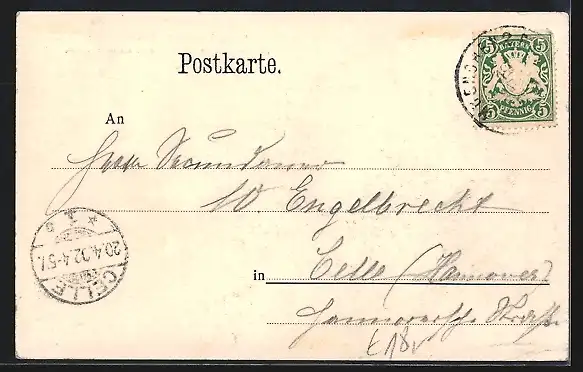 Postkarte.
5 BAYERN 5
5 PFENNIG 5
An
Herrn Secundaner
W. Engelbrecht
in Celle (Hannover)
Hannoversche Straße
CELLE
20.4.02.4-5N.